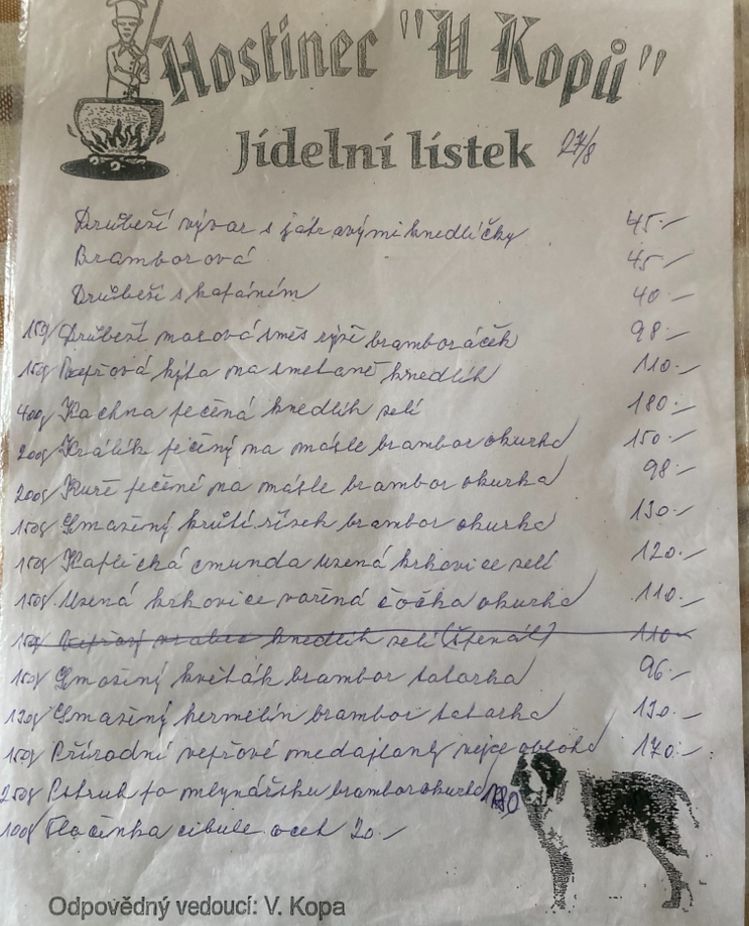 Hostinec "U Kopů"
Jídelní lístek 27/8
Drůbeží vývar s játrovými knedlíčky 45.-
Bramborová 45.-
Drůbeží s kapáním 40.-
150g Drůbeží masová směs rýže bramboráček 98.-
150g Vepřová kýta na smetaně knedlík 110.-
400g Kachna pečená knedlík zelí 180.-
200g Králík pečený na másle brambor okurka 150.-
200g Kuře pečené na másle brambor okurka 98.-
150g Smažený krůtí řízek brambor okurka 130.-
150g Kaplická cmunda uzená krkovice zelí 120.-
150g Uzená krkovice vařená čočka okurka 110.-
150g Vepřový vrabec knedlík zelí (špenát) 110.-
150g Smažený květák brambor tatarka 96.-
130g Smažený hermelín brambor tatarka 130.-
150g Přírodní vepřové medajlonky vejce obloha 170.-
250g Pstruh po mlynářsku brambor okurka
100g Tlačenka cibule ocet 20.-
Odpovědný vedoucí: V. Kopa